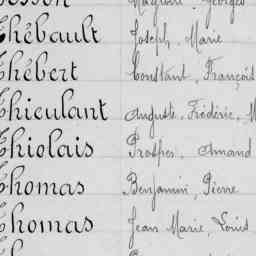 Thébault Joseph, Marie
Thébert Constant, François
Thieulant Auguste, Frédéric, M
Thiolais Prosper, Amand
Thomas Benjamin, Pierre
Thomas Jean Marie, Louis